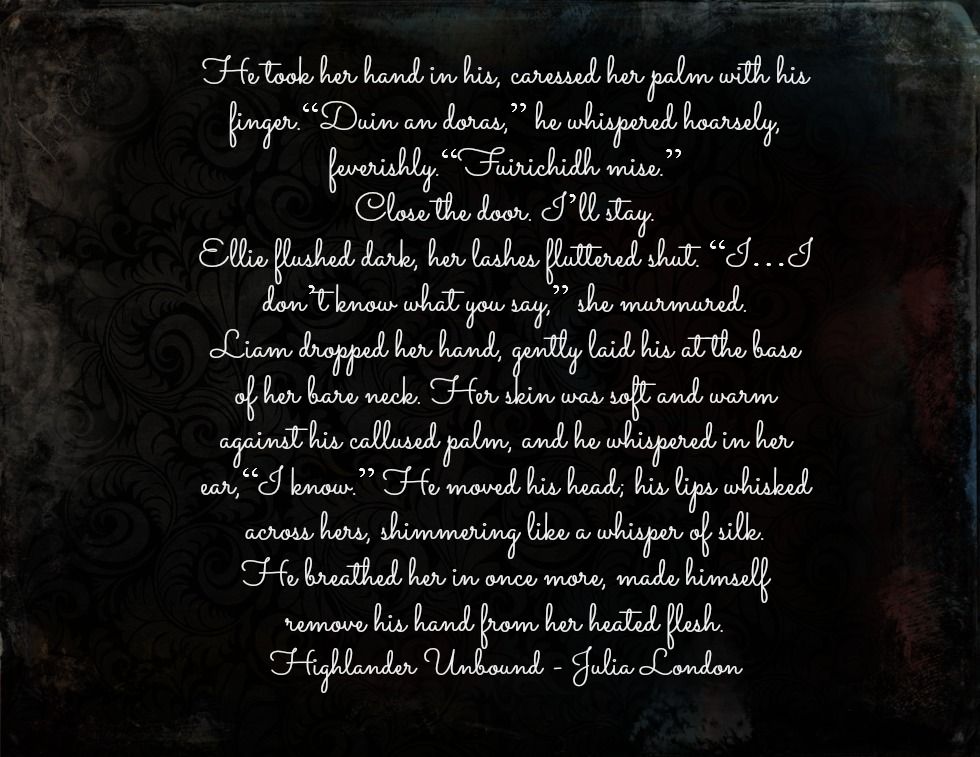 He took her hand in his, caressed her palm with his
finger.“Duin an doras,” he whispered hoarsely,
feverishly.“Fuirichidh mise.”
Close the door. I’ll stay.
Ellie flushed dark, her lashes fluttered shut. “I…I
don’t know what you say,” she murmured.
Liam dropped her hand, gently laid his at the base
of her bare neck. Her skin was soft and warm
against his callused palm, and he whispered in her
ear,“I know.” He moved his head; his lips whisked
across hers, shimmering like a whisper of silk.
He breathed her in once more, made himself
remove his hand from her heated flesh.
Highlander Unbound - Julia London